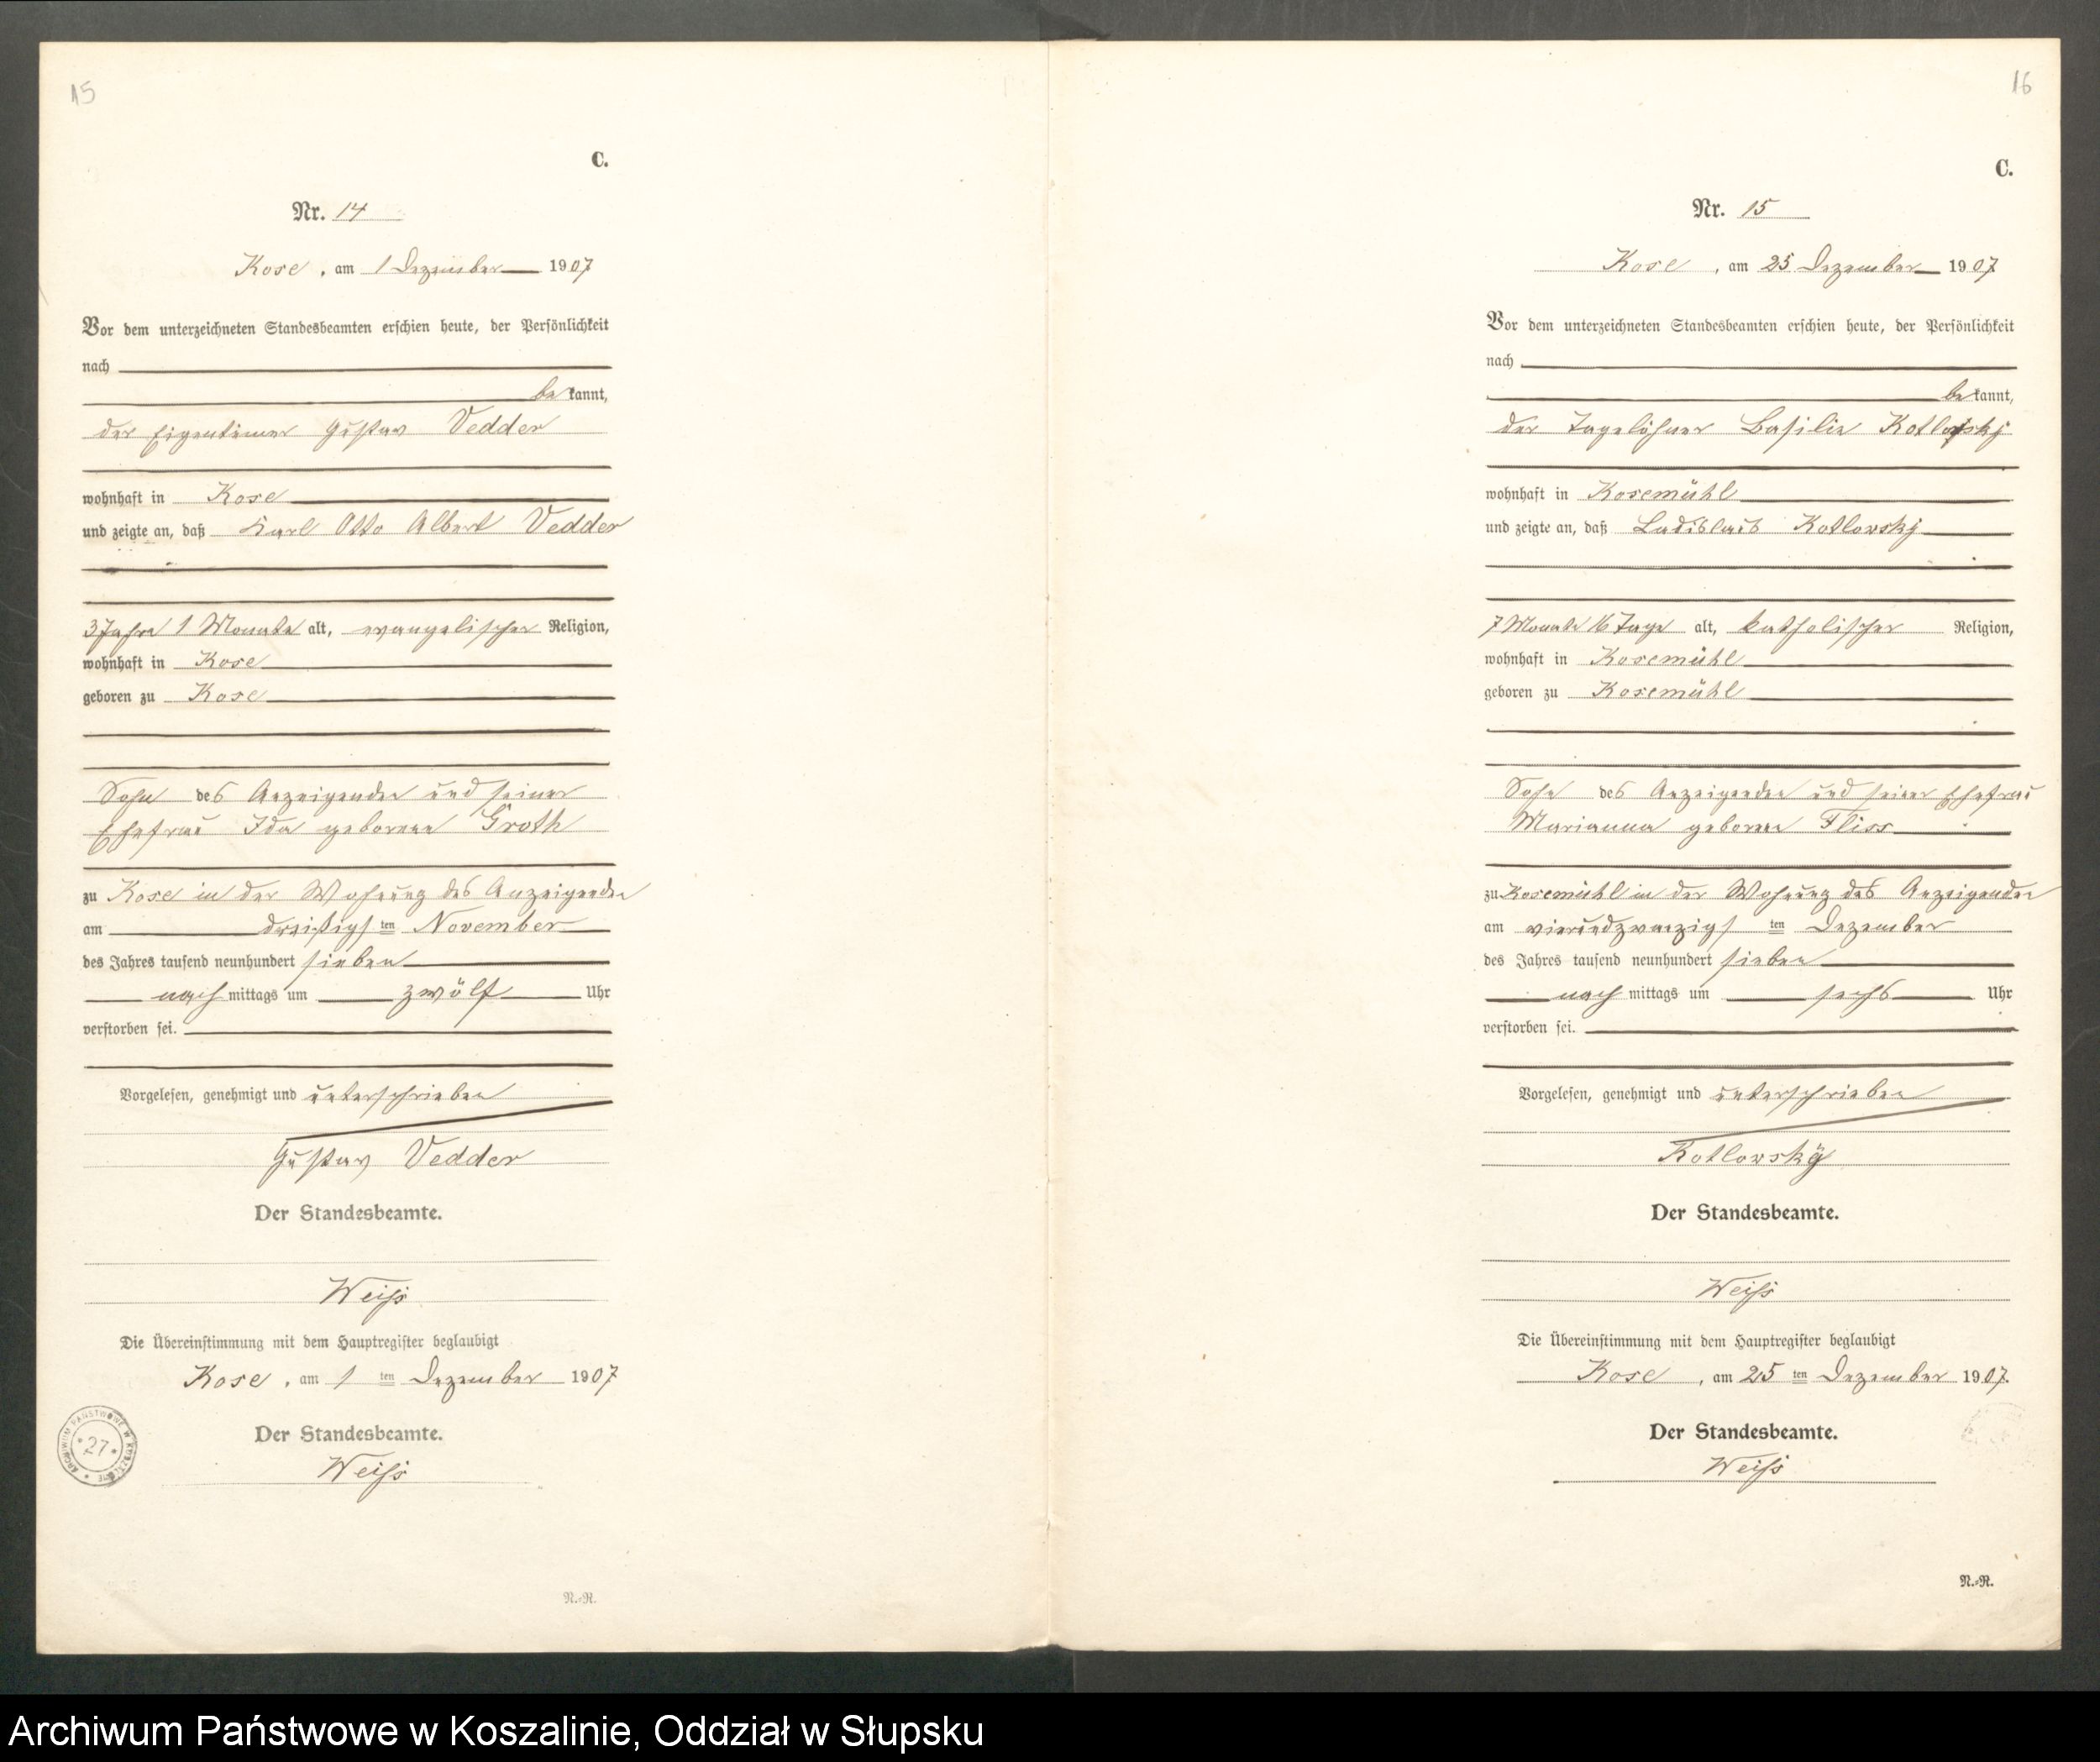 15
C.
Nr. 14
Kose, am 1 Dezember 1907
Vor dem unterzeichneten Standesbeamten erschien heute, der Persönlichkeit
nach
bekannt,
der Eigentümer Gustav Vedder
wohnhaft in Kose
und zeigte an, daß Karl Otto Albert Vedder
3 Jahre 1 Monate alt, evangelischer Religion,
wohnhaft in Kose
geboren zu Kose
Sohn des Anzeigenden und seiner
Ehefrau Ida geborene Groth
zu Kose in der Wohnung des Anzeigenden
am dreißigsten November
des Jahres tausend neunhundert sieben
nachmittags um zwölf Uhr
verstorben sei.
Vorgelesen, genehmigt und unterschrieben
Gustav Vedder
Der Standesbeamte.
Weiß
Die Übereinstimmung mit dem Hauptregister beglaubigt
Kose, am 1ten Dezember 1907
Der Standesbeamte.
Weiß
ARCHIWUM PAŃSTWOWE W KOSZALINIE * 27 *
N.-R.
16
C.
Nr. 15
Kose, am 25 Dezember 1907
Vor dem unterzeichneten Standesbeamten erschien heute, der Persönlichkeit
nach
bekannt,
der Tagelöhner Basilie Kotlowsky
wohnhaft in Kosemühl
und zeigte an, daß Ladislaus Kotlowsky
7 Monate 16 Tage alt, katholischer Religion,
wohnhaft in Kosemühl
geboren zu Kosemühl
Sohn des Anzeigenden und seiner Ehefrau
Marianna geborene Fliss
zu Kosemühl in der Wohnung des Anzeigenden
am vierundzwanzigsten Dezember
des Jahres tausend neunhundert sieben
nachmittags um sechs Uhr
verstorben sei.
Vorgelesen, genehmigt und unterschrieben
Kotlowsky
Der Standesbeamte.
Weiß
Die Übereinstimmung mit dem Hauptregister beglaubigt
Kose, am 25ten Dezember 1907.
Der Standesbeamte.
Weiß
N.-R.
Archiwum Państwowe w Koszalinie, Oddział w Słupsku